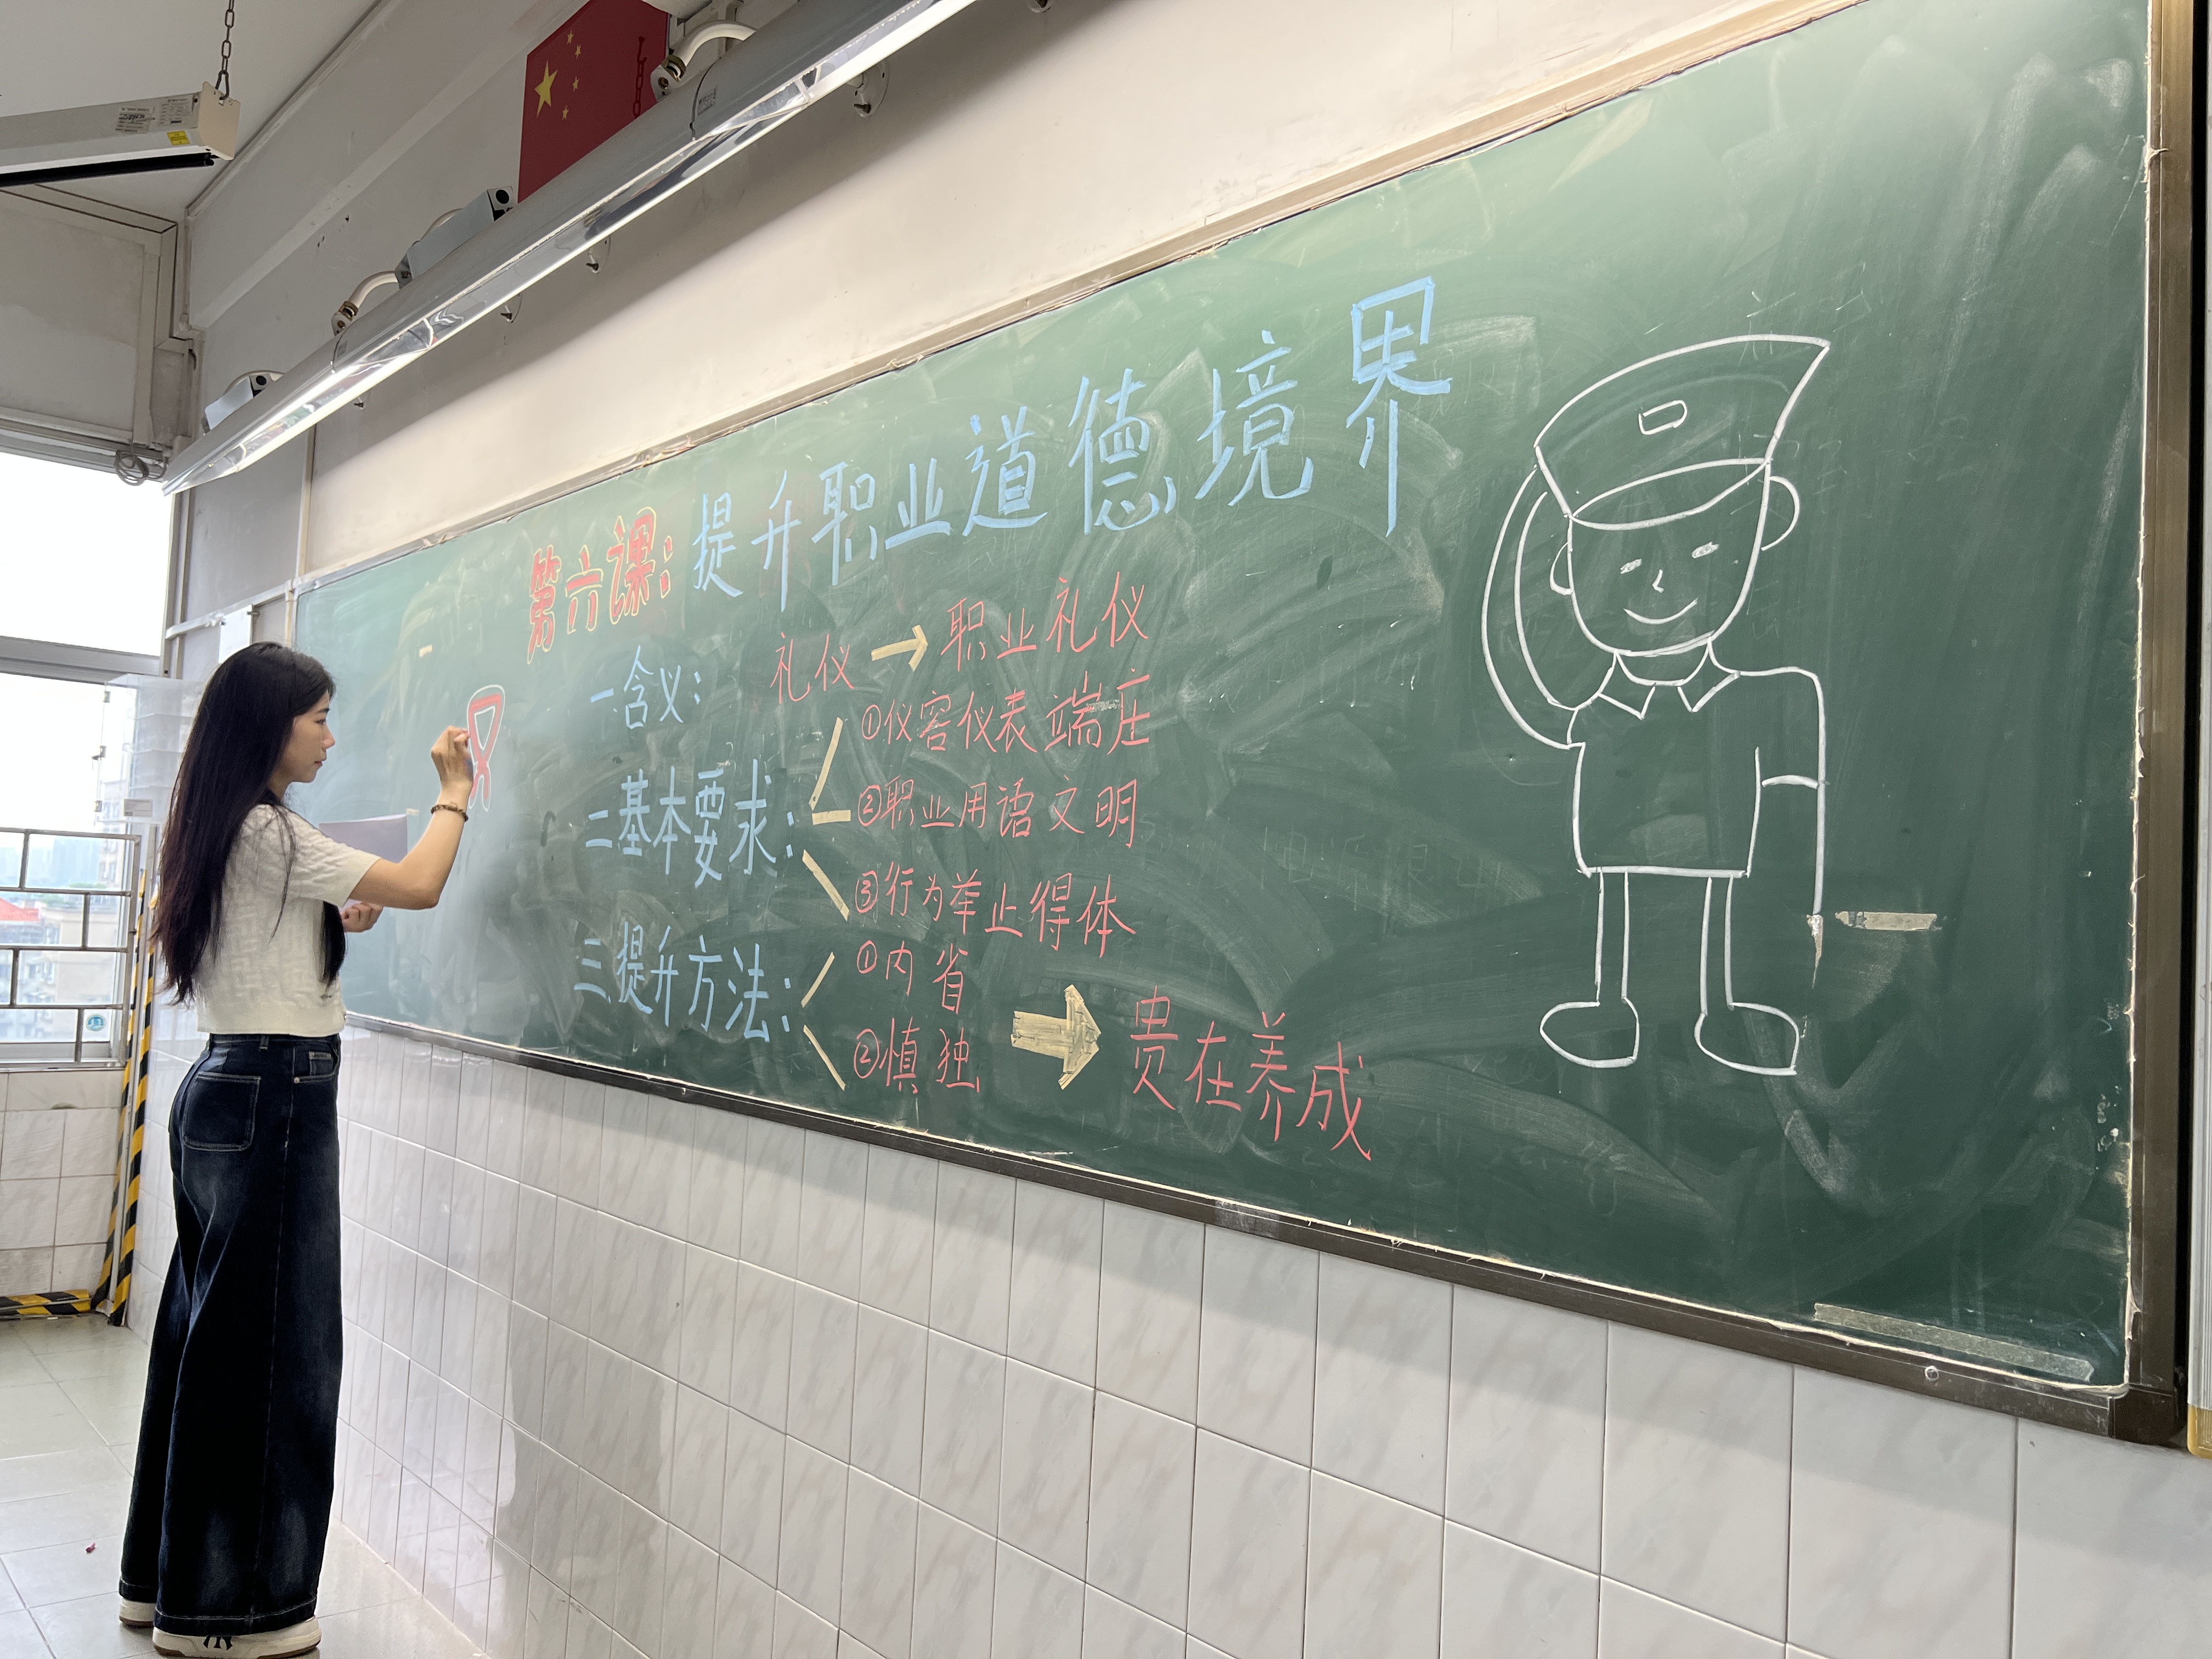 第六课：提升职业道德境界
一含义：礼仪→职业礼仪
二基本要求：
①仪容仪表端庄
②职业用语文明
③行为举止得体
三提升方法：
①内省
②慎独
贵在养成